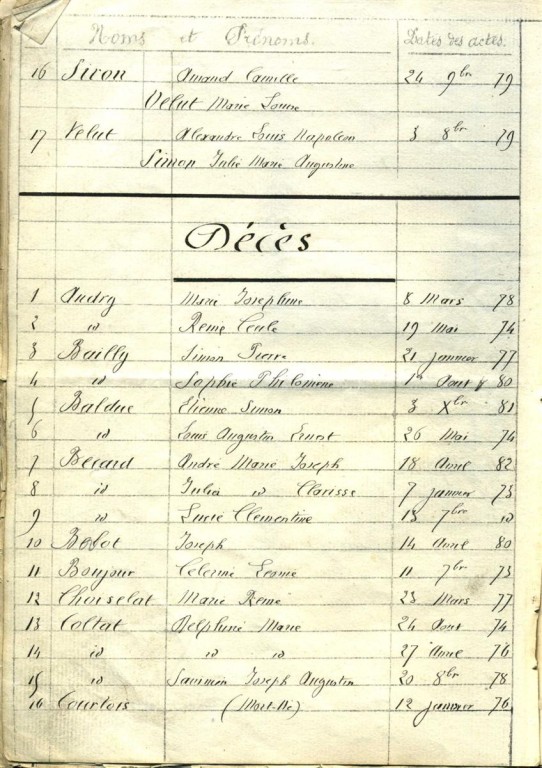 Noms et Prénoms. Dates des actes.
16 Siron Amand Camille 24 9bre 79
Velut Marie Louise
17 Velut Alexandre Louis Napoléon 3 8bre 79
Simon Julie Marie Augustine
Décès
1 Audry Marie Joséphine 8 Mars 78
2 id René 19 Mai 74
3 Bailly Simon Pierre 21 janvier 77
4 id Sophie Philomène 1er Aout 80
5 Balduc Etienne Simon 3 Xbre 81
6 id Louis Augustin Ernest 26 Mai 74
7 Becard André Marie Joseph 18 Avril 82
8 id Julia id Clarisse 7 janvier 73
9 id Lucie Clementine 13 7bre id
10 Joseph 14 Avril 80
11 Boujour 11 7bre 73
12 Choiselat Marie René 23 Mars 77
13 Coltat Delphine Marie 24 Aout 74
14 id id id 27 Avril 76
15 id Joseph Augustin 20 8bre 78
16 Courtois (Mort-Né) 12 janvier 76